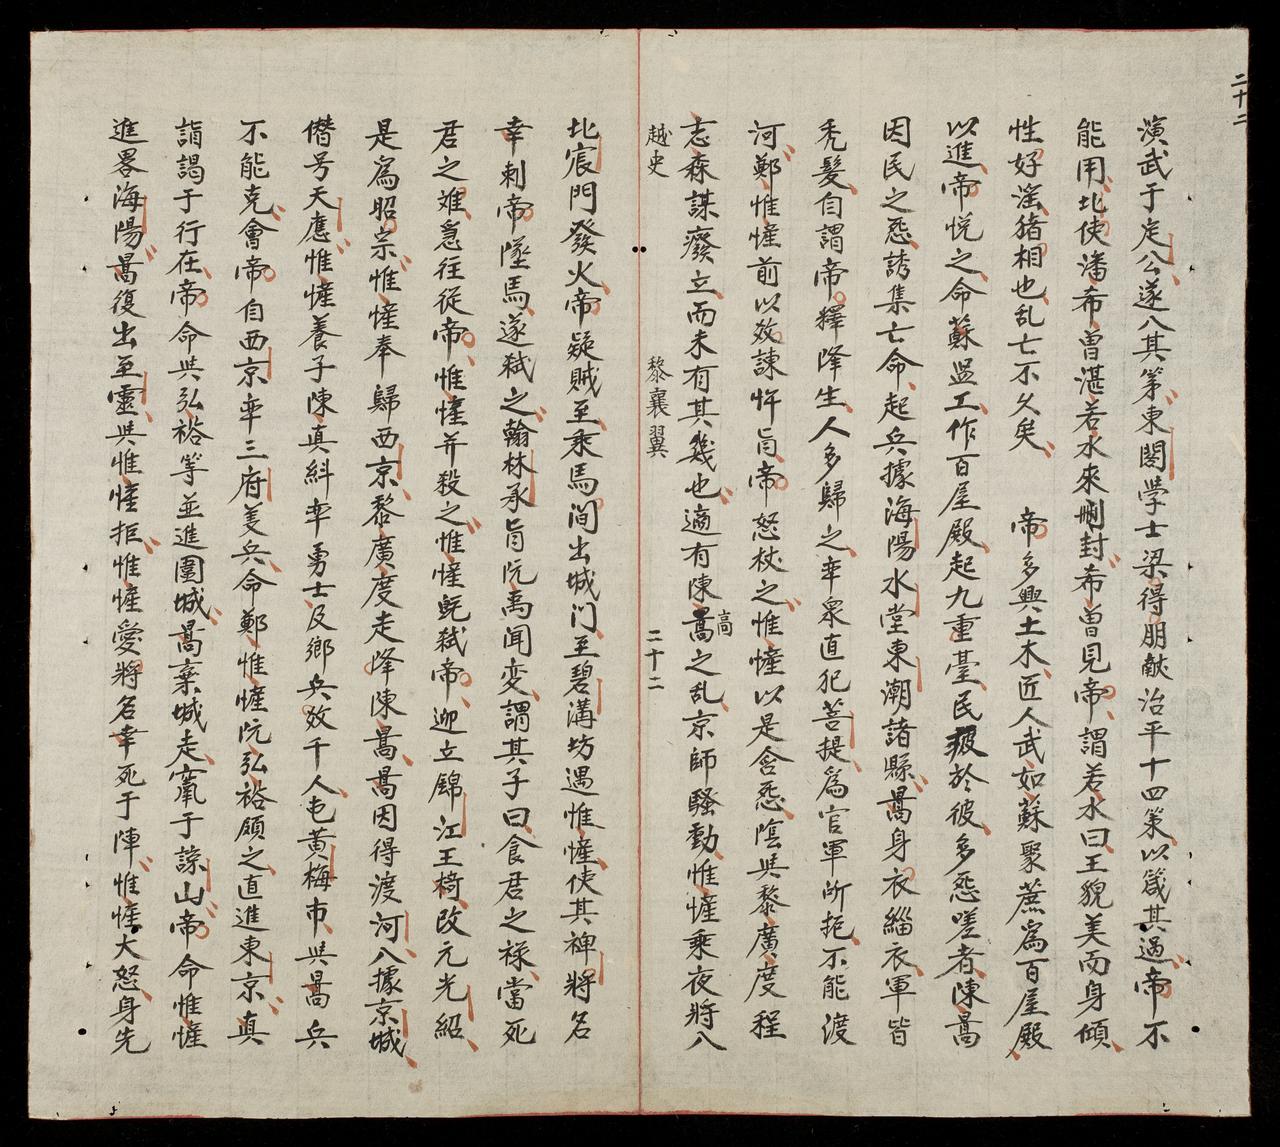 二十二
演武于定公遂八其第東閣学士梁得朋献治平十四策以箴其過帝不
能用北使潘希曾湛若水來册封希曾見帝謂若水曰王貌美而身傾
性好滛猪相也乱亡不久矣 帝多興土木匠人武如蘇聚蔗為百屋殿
以進帝悦之命蘇監工作百屋殿起九重臺民疲於彼多怨嗟者陳暠
因民之怨誘集亡命起兵據海陽水堂東潮諸縣暠身衣緇衣軍皆
秃髮自謂帝釋降生人多歸之率衆直犯菩提為官軍所拒不能渡
河鄭惟㦃前以效諫忤旨帝怒杖之惟㦃以是含怨隂与黎廣度程
志森謀廢立而未有其幾也適有陳暠高之乱京師騷動惟㦃乘夜將八
越史 黎襄翼 二十二
北宸門發火帝疑賊至乘馬潤出城门至碧溝坊遇惟㦃使其裨將名
幸刺帝墜馬遂弑之翰林承旨阮禹闻変謂其子曰食君之禄當死
君之难急往従帝惟㦃并殺之惟㦃既弑帝迎立錦江王椅改元光紹
是為昭宗惟㦃奉歸西京黎廣度走降陳暠暠因得渡河八據京城
僭号天應惟㦃養子陳真糾率勇士及鄉兵效千人屯黄梅市与暠兵
不能克會帝自西京率三府美兵命鄭惟㦃阮弘裕顧之直進東京真
詣謁于行在帝命与弘裕等並進圍城暠棄城走竄于諒山帝命惟㦃
進畧海陽暠復出至靈与惟㦃拒惟㦃愛將名幸死于陣惟㦃大怒身先